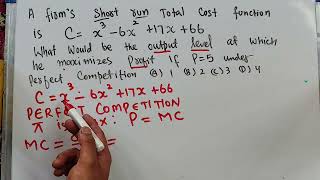 A firm's Short run Total Cost function
is C = x³ - 6x² + 17x + 66
What would be the output level at which
he maximizes Profit if P=5 under
Perfect Competition (A) 1 (B) 2 (C) 3 (D) 4
C = x³ - 6x² + 17x + 66
PERFECT COMPETITION
π is max : P = MC
MC =